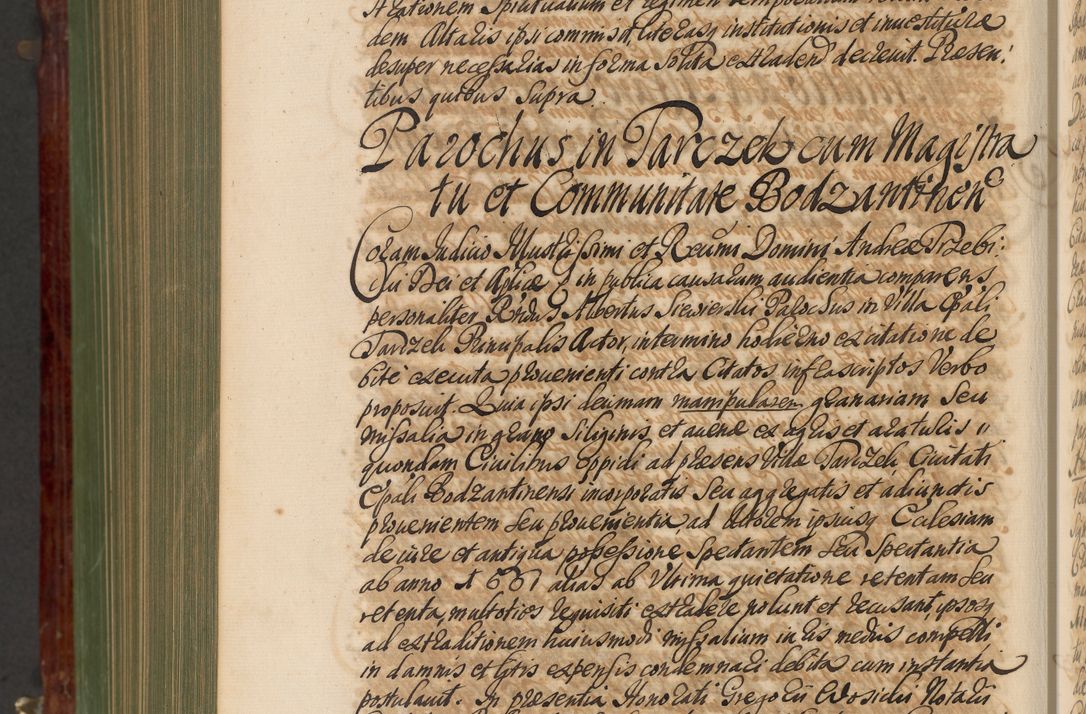 dem Altaris ipsi commisit literasq institutionis et inuestituræ
desuper necessarias in forma solita extradend decreuit. Præsen:
tibus quibus supra.
Parochus in Tarczek cum Magistra
tu et Communitate Bodzantinen
Coram Iudicio Illustrissimi et Reumi Domini Andreæ Trzebi:
cki Dei et Aplicæ in publica causarum audientia comparens
personaliter Rndus Albertus Siewierski Parochus in Villa Epali
Tarczek Principalis Actor, in termino hodierno ex citatione de
bite executa prouenienti contra Citatos infrascriptos Verbo
proposuit. Quia ipsi decimam manipularem granariam seu
missalia in grano siliginis et auenæ ex agris et aratulis
quondam Ciuilibus oppidi ad præsens Villæ Tarczek Ciuitati
Epali Bodzantinensi incorporatis seu aggregatis et adiunctis
prouenientem seu prouenientia, ad Actorem ipsiusq Eclesiam
de iure et antiqua possessione spectantem seu spectantia
ab anno 1661 alias ab Vltima quietatione retentam seu
retenta, multoties requisiti extradere nolunt et recusant, ipsosq
ad extraditionem huiusmodi missalium in his mediis compelli
in damnis et litis expensis condemnari debita cum instantia
postulauit. In præsentia Honorati Gregorii Notarii